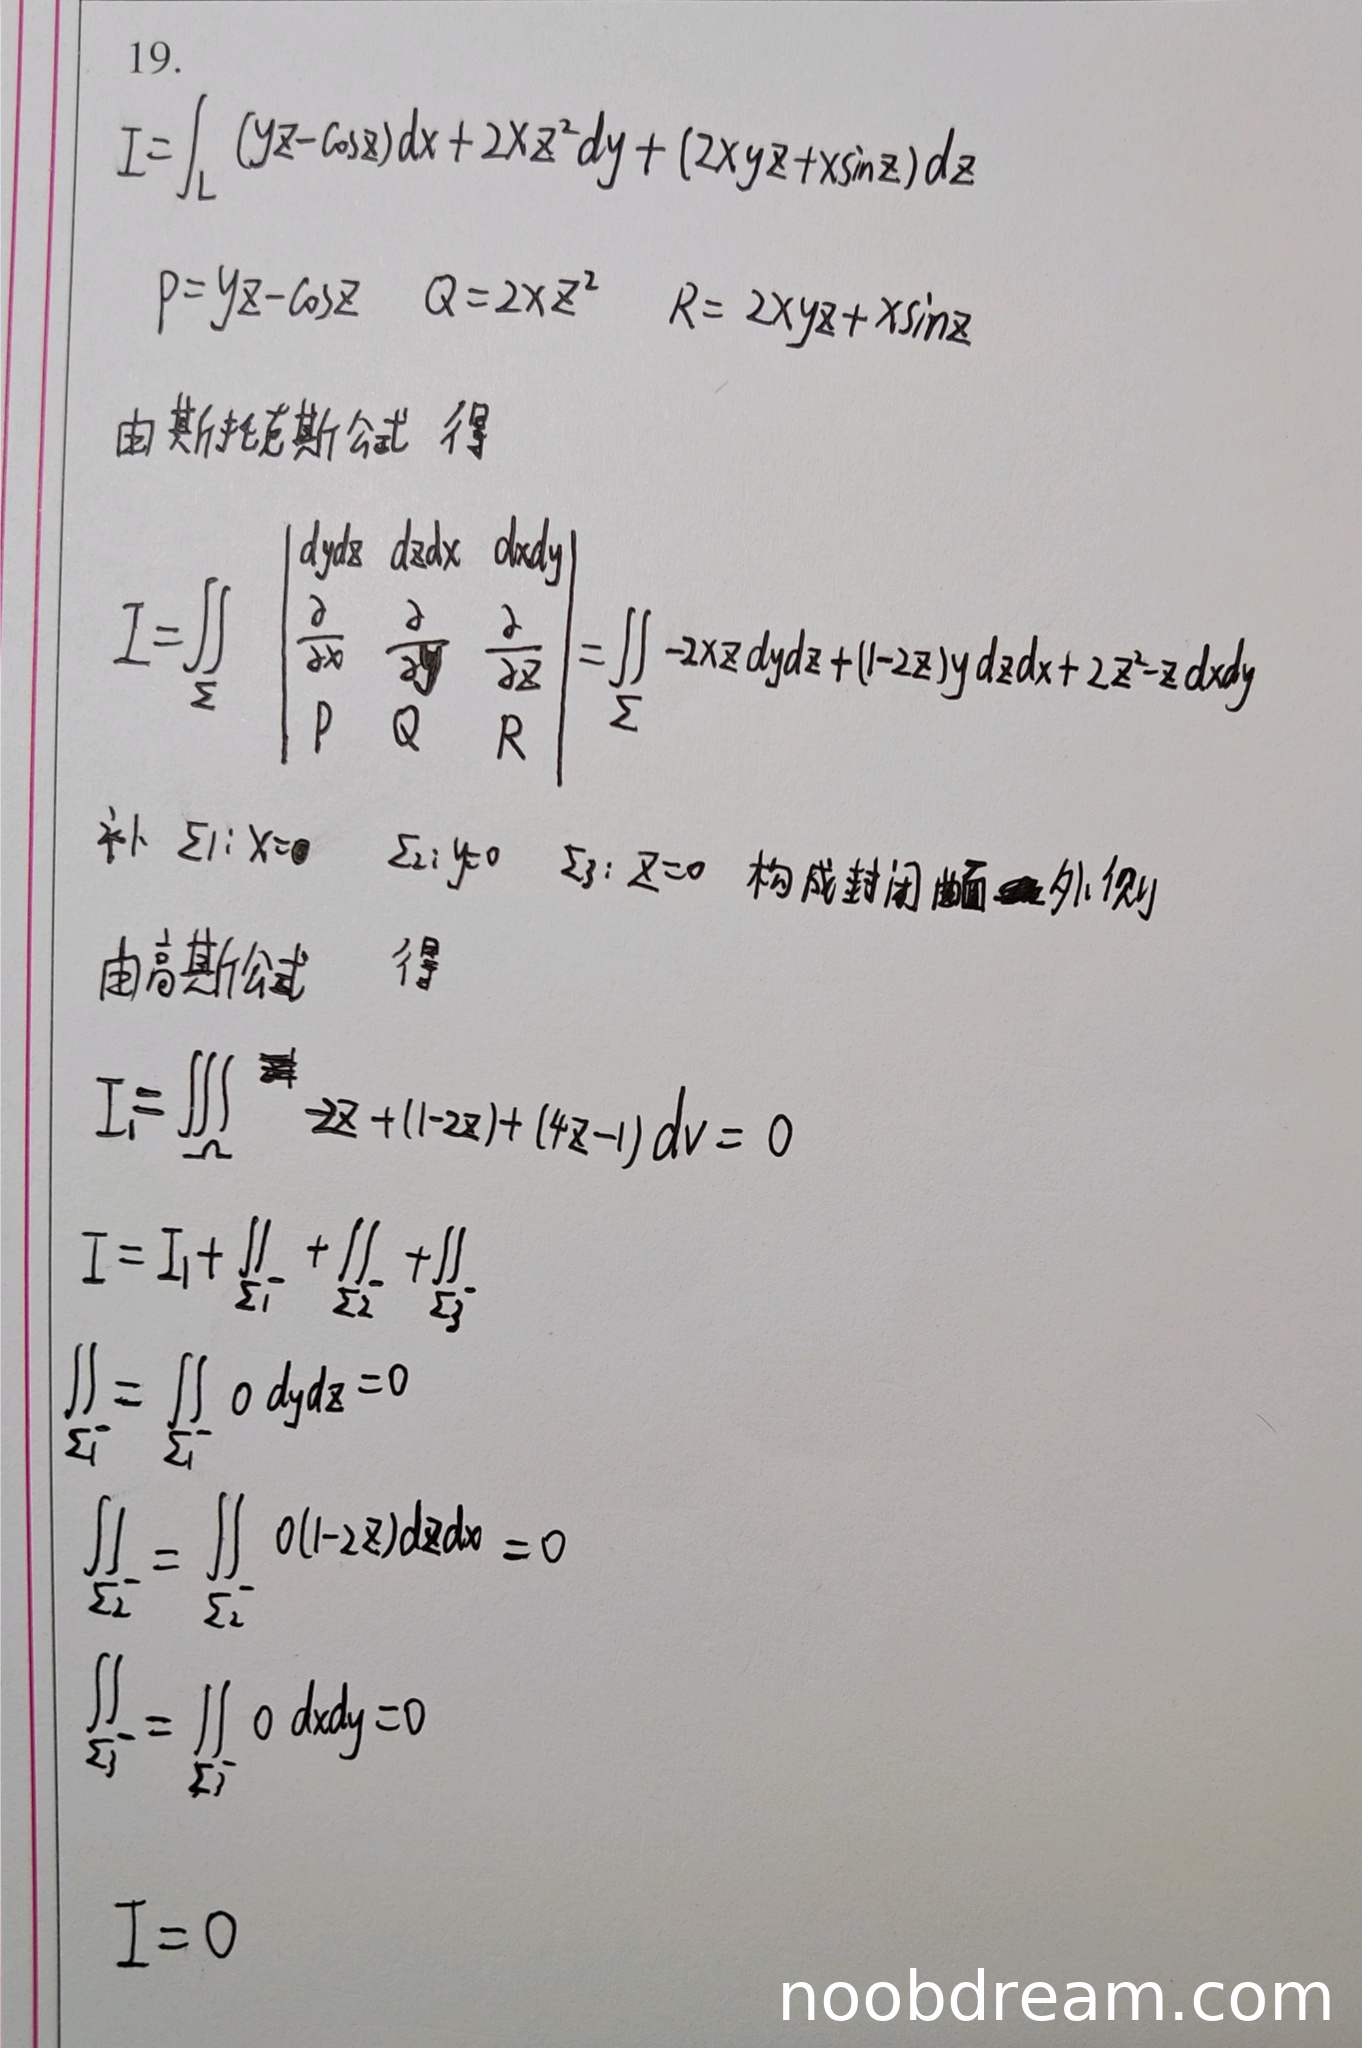 19.
I=∫_L (yz-cosz)dx+2xz²dy+(2xyz+xsinz)dz
P=yz-cosz Q=2xz² R=2xyz+xsinz
由斯托克斯公式 得
I=∬_Σ |dydz dzdx dxdy; ∂/∂x ∂/∂y ∂/∂z; P Q R| =∬_Σ -2xzdydz+(1-2z)ydzdx+2z²-zdxdy
补 Σ1:x=0 Σ2:y=0 Σ3:z=0 构成封闭曲面 外侧
由高斯公式 得
I₁=∭_Ω -2z+(1-2z)+(4z-1)dv=0
I=I₁+∬_Σ1⁻ +∬_Σ2⁻ +∬_Σ3⁻
∬_Σ1⁻ = ∬_Σ1⁻ 0 dydz=0
∬_Σ2⁻ = ∬_Σ2⁻ 0(1-2z)dzdx=0
∬_Σ3⁻ = ∬_Σ3⁻ 0 dxdy=0
I=0
noobdream.com